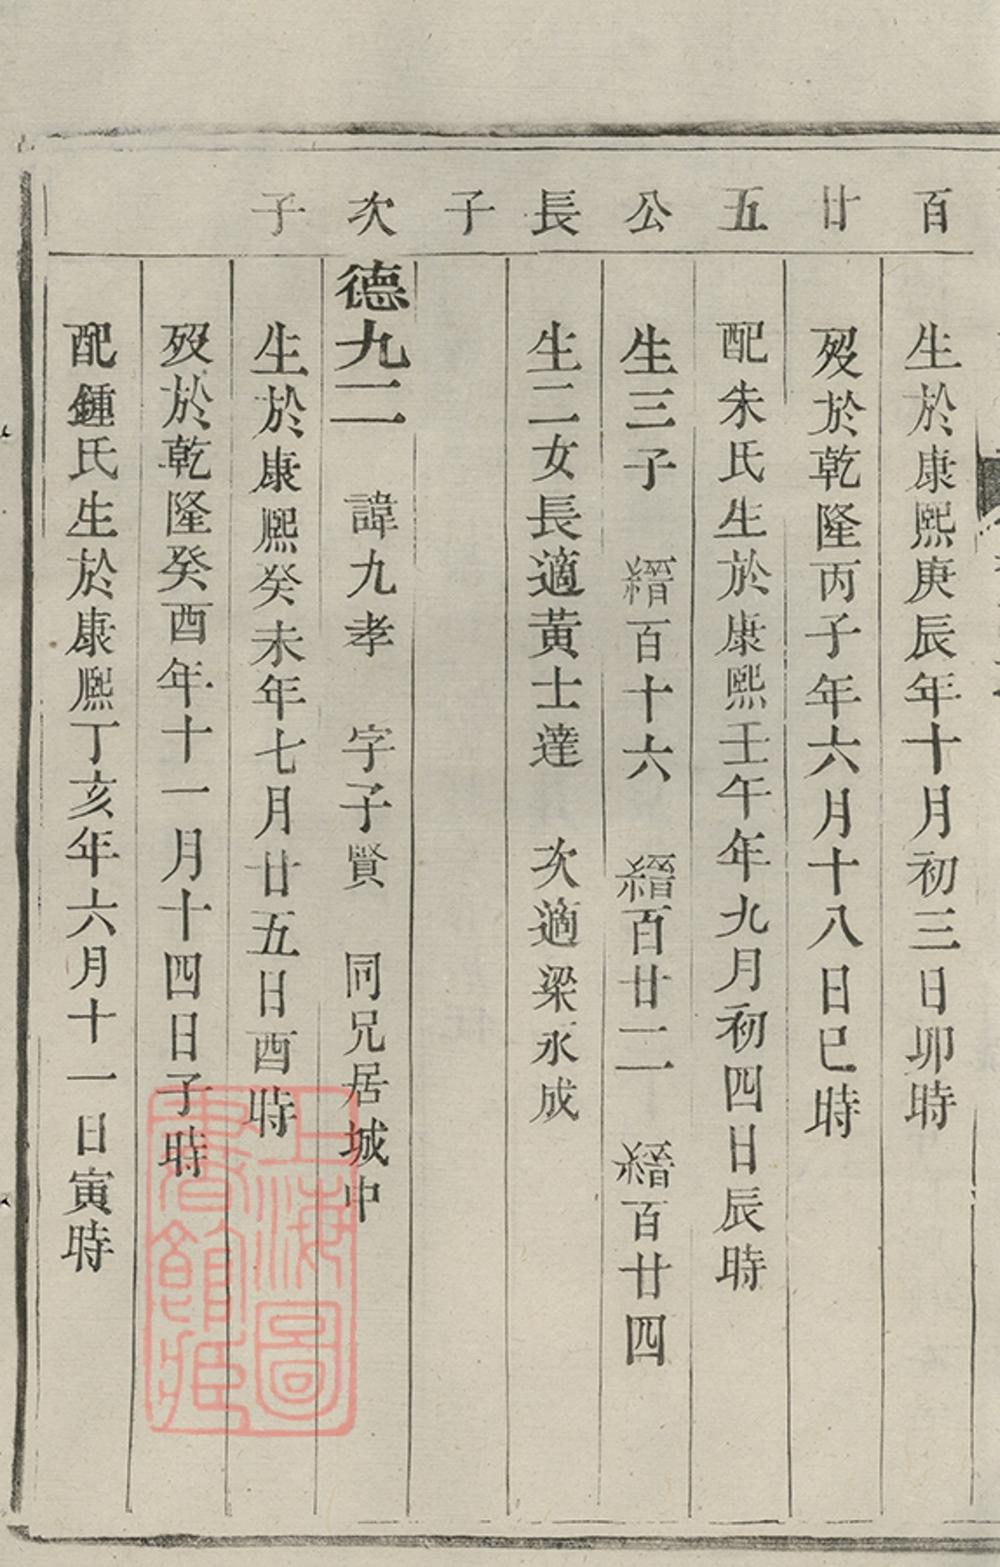 百廿五公長子
次子
生於康熙庚辰年十月初三日卯時
歿於乾隆丙子年六月十八日巳時
配朱氏生於康熙壬午年九月初四日辰時
生三子　縉百十六　縉百廿二　縉百廿四
生二女長適黃士達　次適梁永成
德九二　諱九孝　字子賢　同兄居城中
生於康熙癸未年七月廿五日酉時
歿於乾隆癸酉年十一月十四日子時
配鍾氏生於康熙丁亥年六月十一日寅時
上海圖書館藏